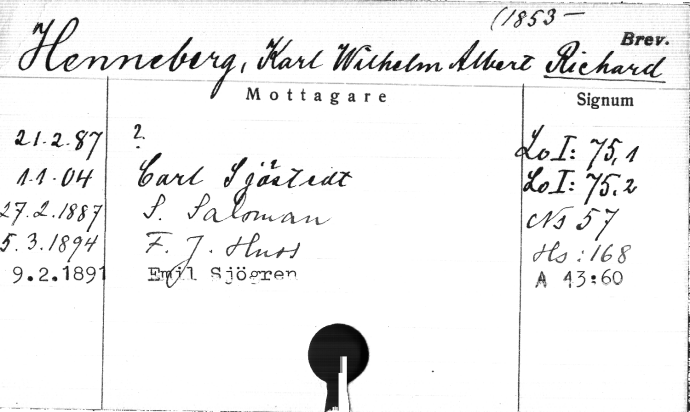 (1853 –
Brev.
Henneberg, Karl Wilhelm Albert Richard
Mottagare Signum
21.2.87 ? Lo I: 75,1
1.1.04 Carl Sjöstedt Lo I: 75.2
27.2.1887 S. Saloman Ns 57
5.3.1894 F. J. Huss Hs: 168
9.2.1891 Emil Sjögren A 43:60